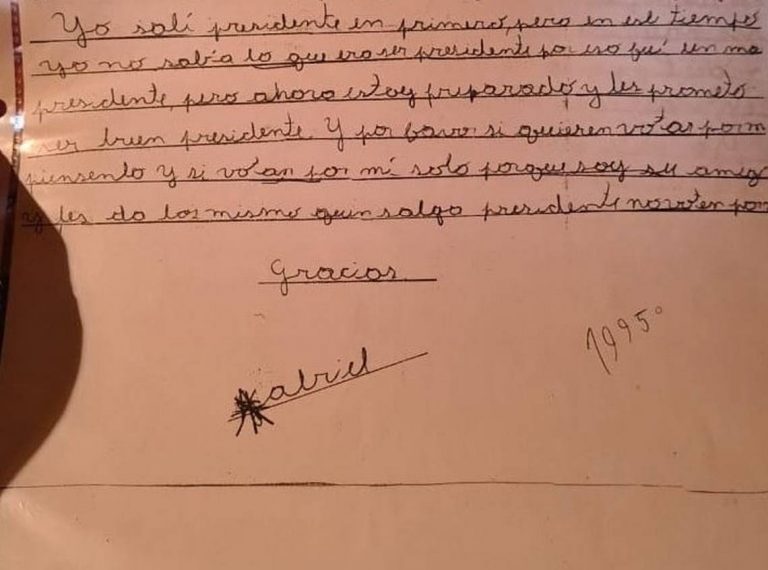 Yo salí presidente en primero, pero en ese tiempo
yo no sabía lo que era ser presidente por eso fuí un ma
presidente, pero ahora estoy preparado y les prometo
ser buen presidente. Y por favor si quieren votar por m
piensenlo y si votan por mí solo porque soy su amig
y les da los mismo quin salga presidente no voten por
Gracias
Gabriel
1995